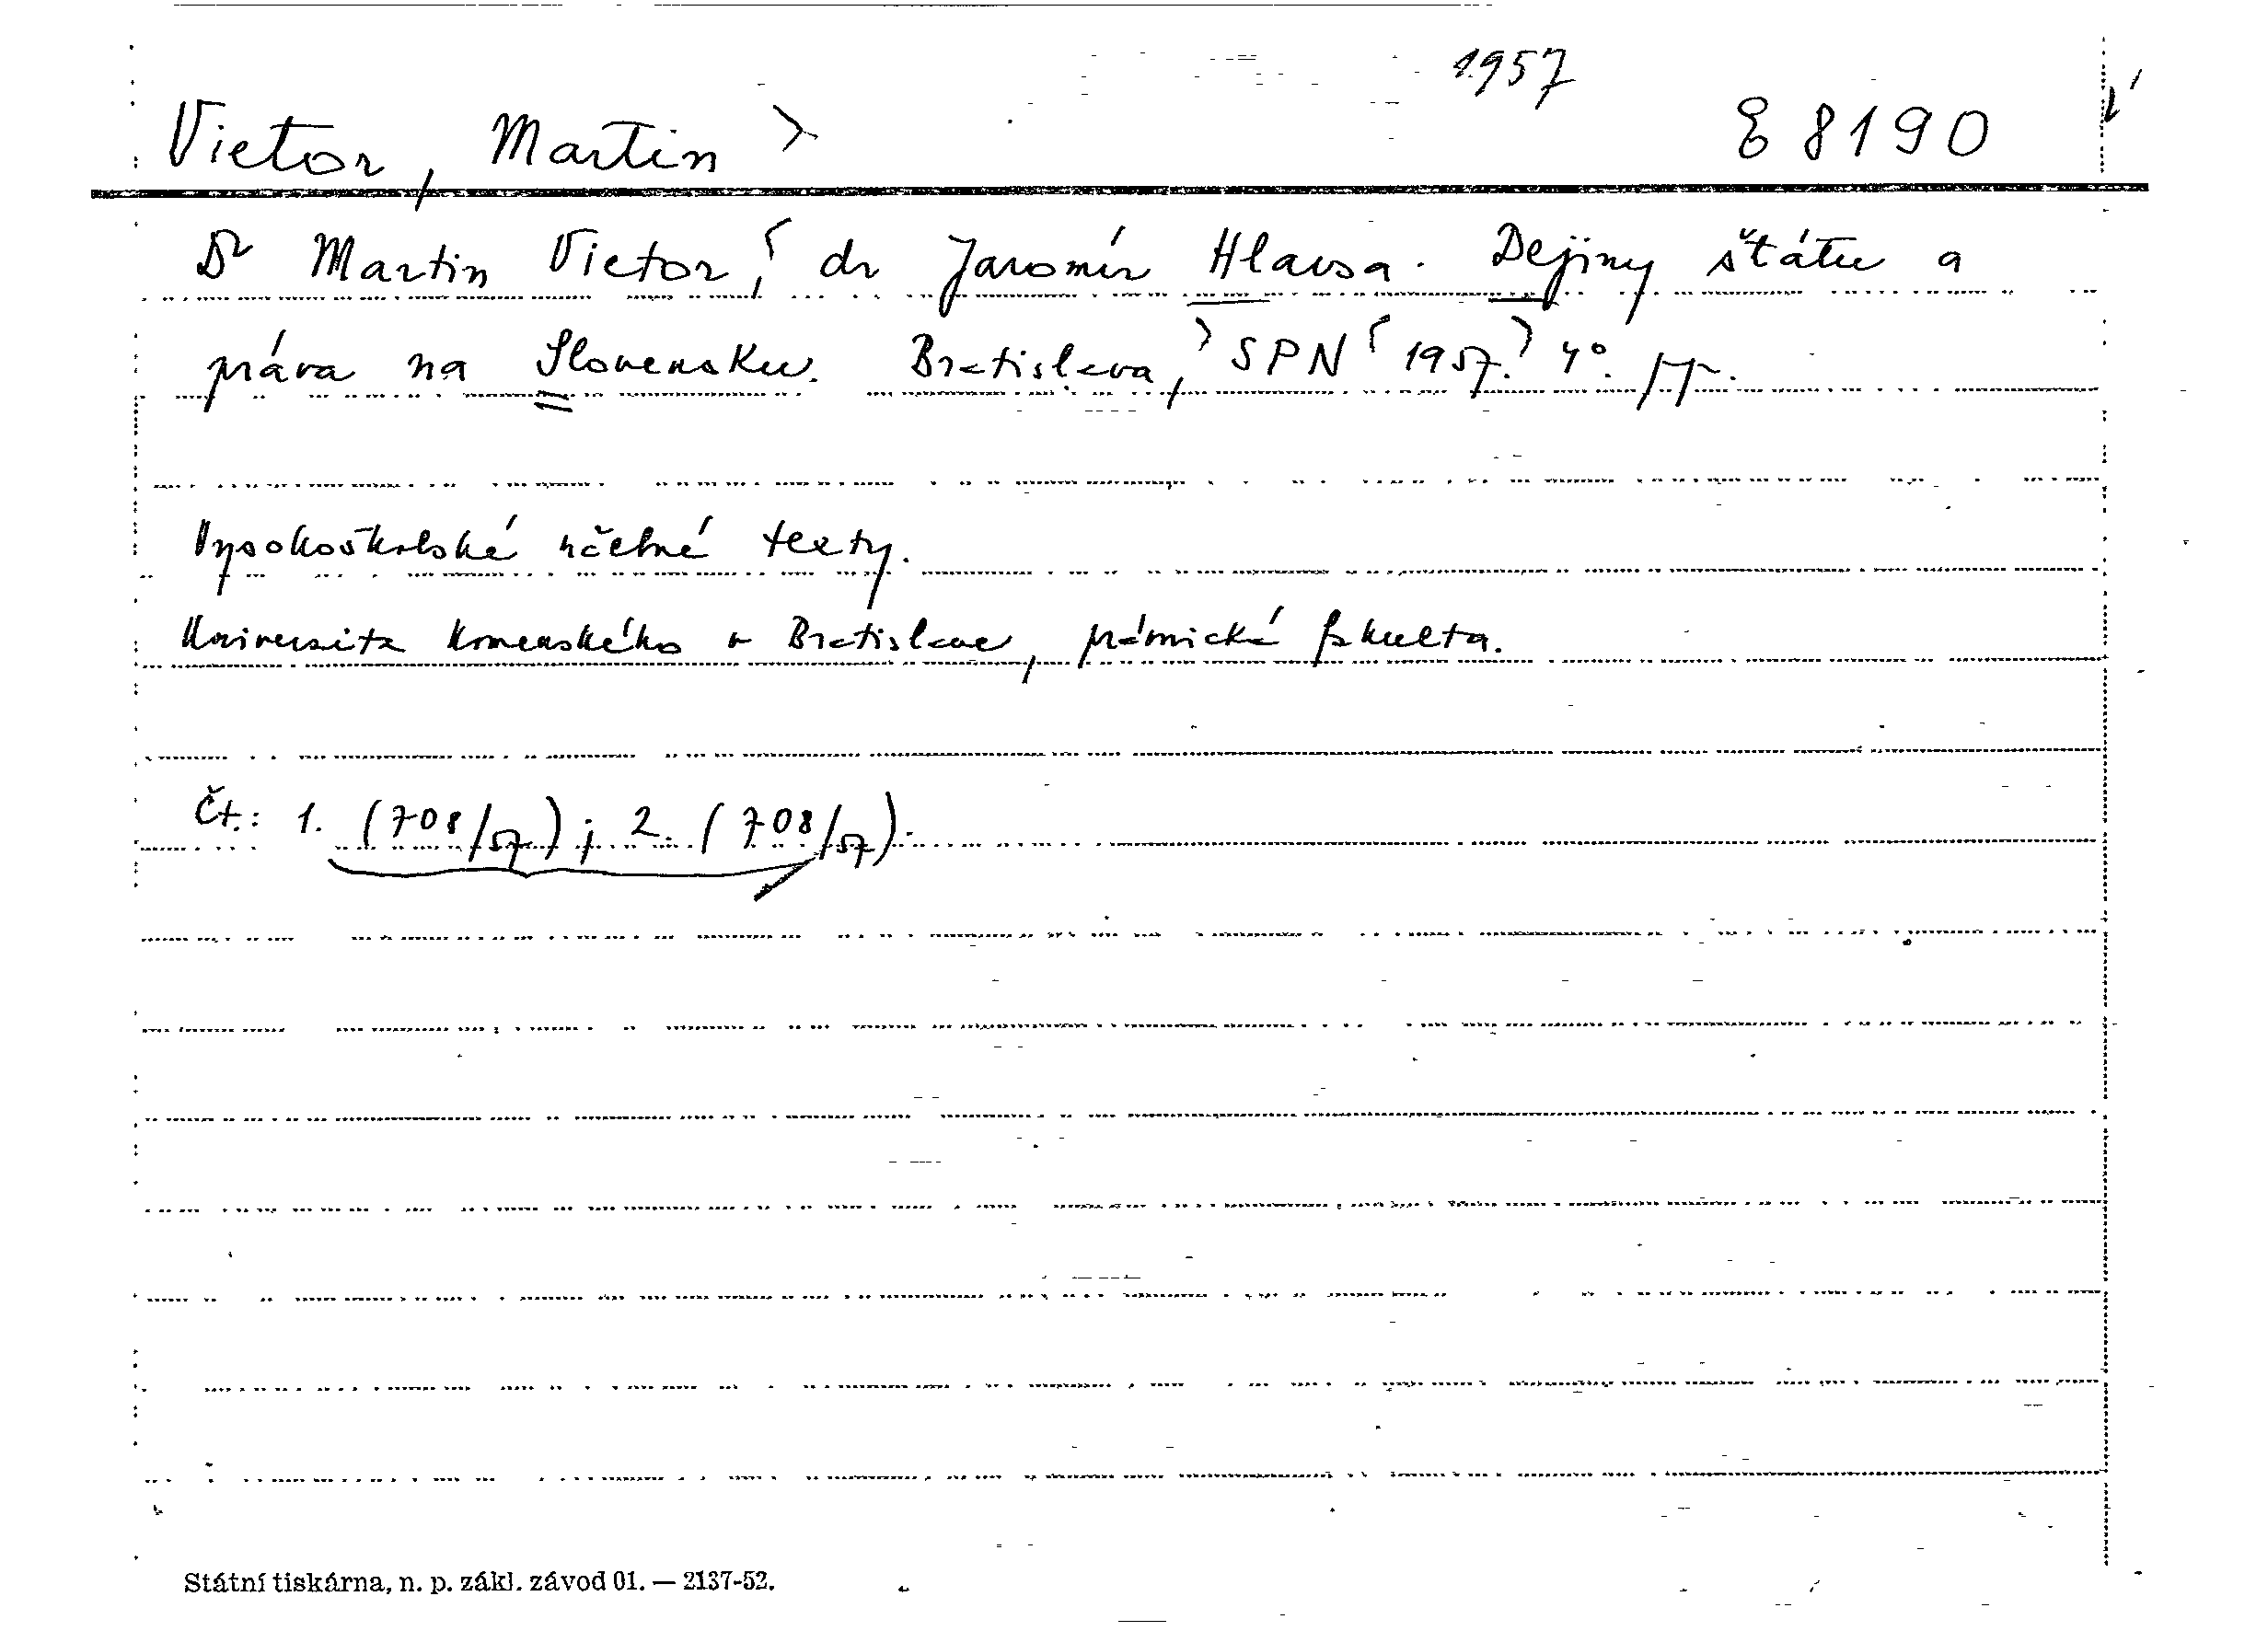 1957
Vietor, Martin E 8190
Dr Martin Vietor, dr Jaromír Hlavsa. Dejiny štátu a
práva na Slovensku. Bratislava, SPN 1957. 4°.
Vysokoškolské učebné texty.
Universita Komenského v Bratislave, právnická fakulta.
Čt.: 1. (708/57); 2. (708/57).
Státní tiskárna, n. p. zákl. závod 01. — 2137-52.